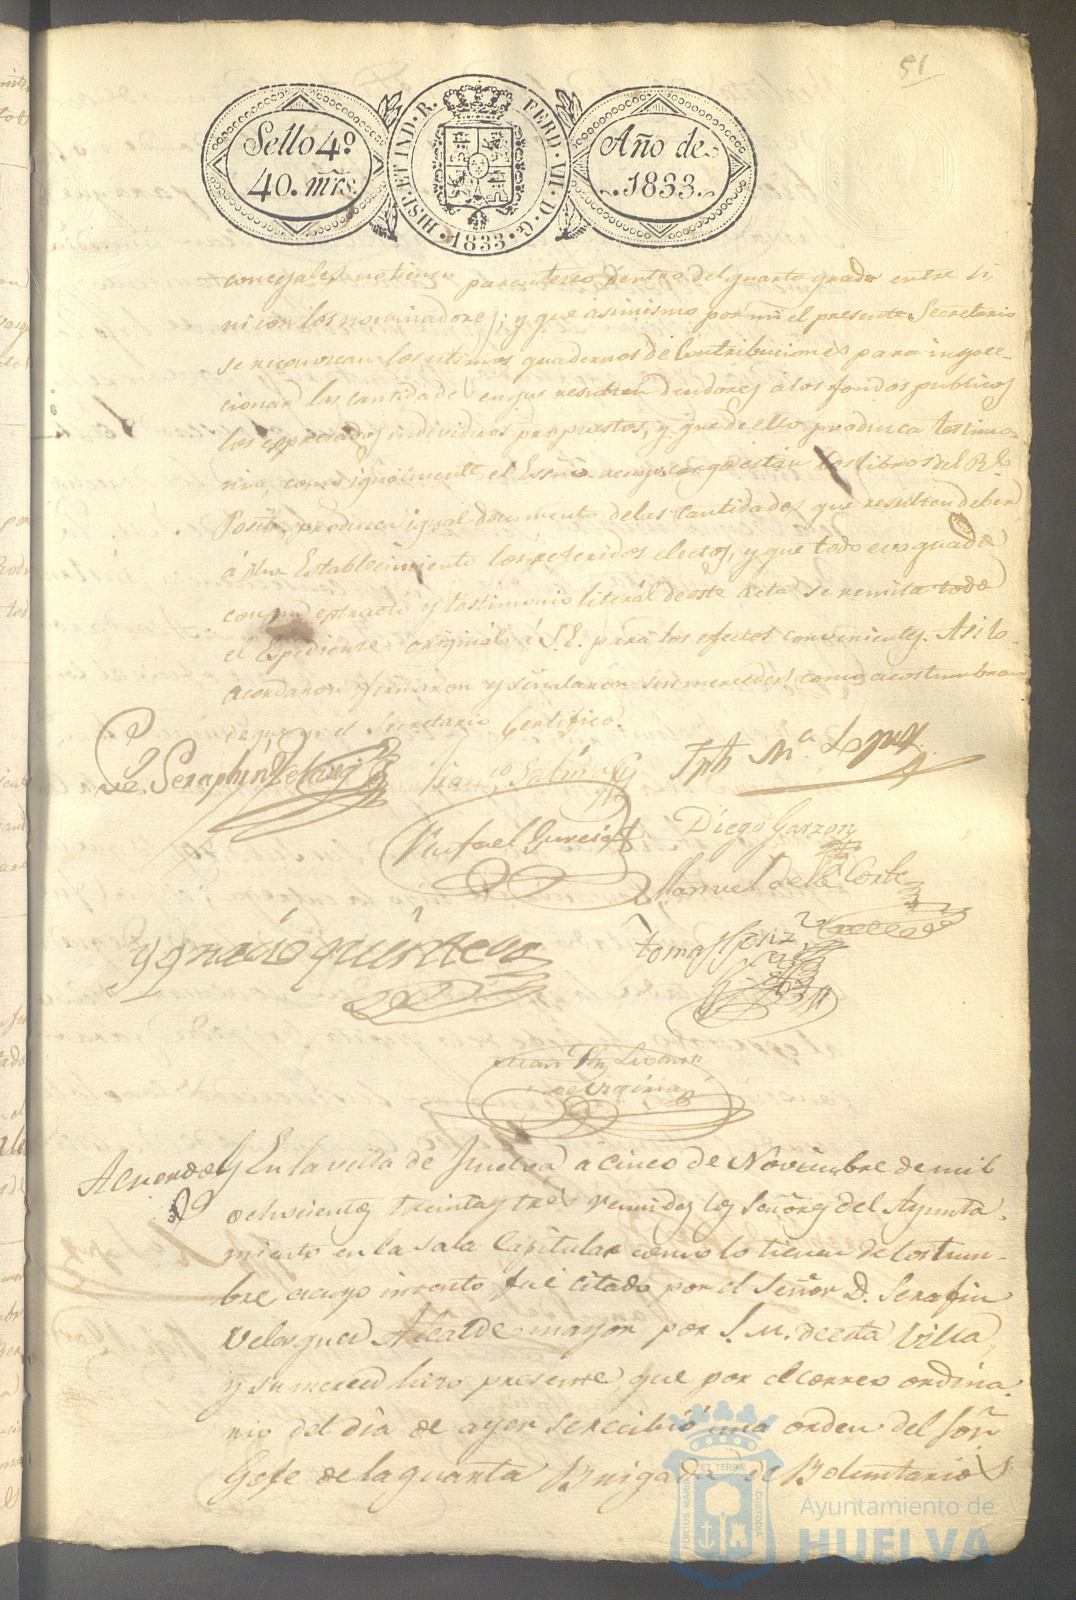 51
Sello 4º
40. mrs.
HISP. ET IND. R. FERD. VII. D. G. 1833.
Año de
1833.
concejales no tienen parentesco dentro del quarto grado entre si
ni con los nominadores; y que asimismo por mi el presente Secretario
se reconozcan los ultimos quadernos de Contribuciones para inspec-
cionar las cantidades en que resulten deudores á los fondos publicos
los espresados individuos propuestos, y que de ello produzca testimo-
nio, como igualmente el Essno. a cuyo cargo estan los libros del Rl.
Posito, produzca igual documento de las cantidades que resulten deber
á dho Establecimiento los referidos electos, y que todo evaquado
con un estracto y testimonio literál de este acta se remita todo
el Espediente original á S.E. para los efectos convenientes. Asi lo
acordaron firmaron y señalaron sus mercedes como acostumbran
de que yo el Secretario Certifico.
Seraphin Velazqz
Franco. Salin
Jph Ma. Lopez
Rafael Garcia
Diego Garzon
Manuel de la Corte
Ygnacio quintero
tomas
Juan
Acuerdo En la villa de Huelva a cinco de Noviembre de mil
ochocientos treinta y tres reunidos los Señores del Ayunta-
miento en la sala Capitular como lo tienen de Costum-
bre a cuyo intento fue citado por el Señor D. Serafin
Velasquez Alcalde mayor por S.M. de esta Villa,
y su merced hizo presente, que por el correo ordina-
rio del dia de ayer se recibió una orden del Sor.
Gefe de la quarta Brigada de Voluntarios
PORTUS MARIS ET TERRÆ CUSTODIA
Ayuntamiento de
HUELVA